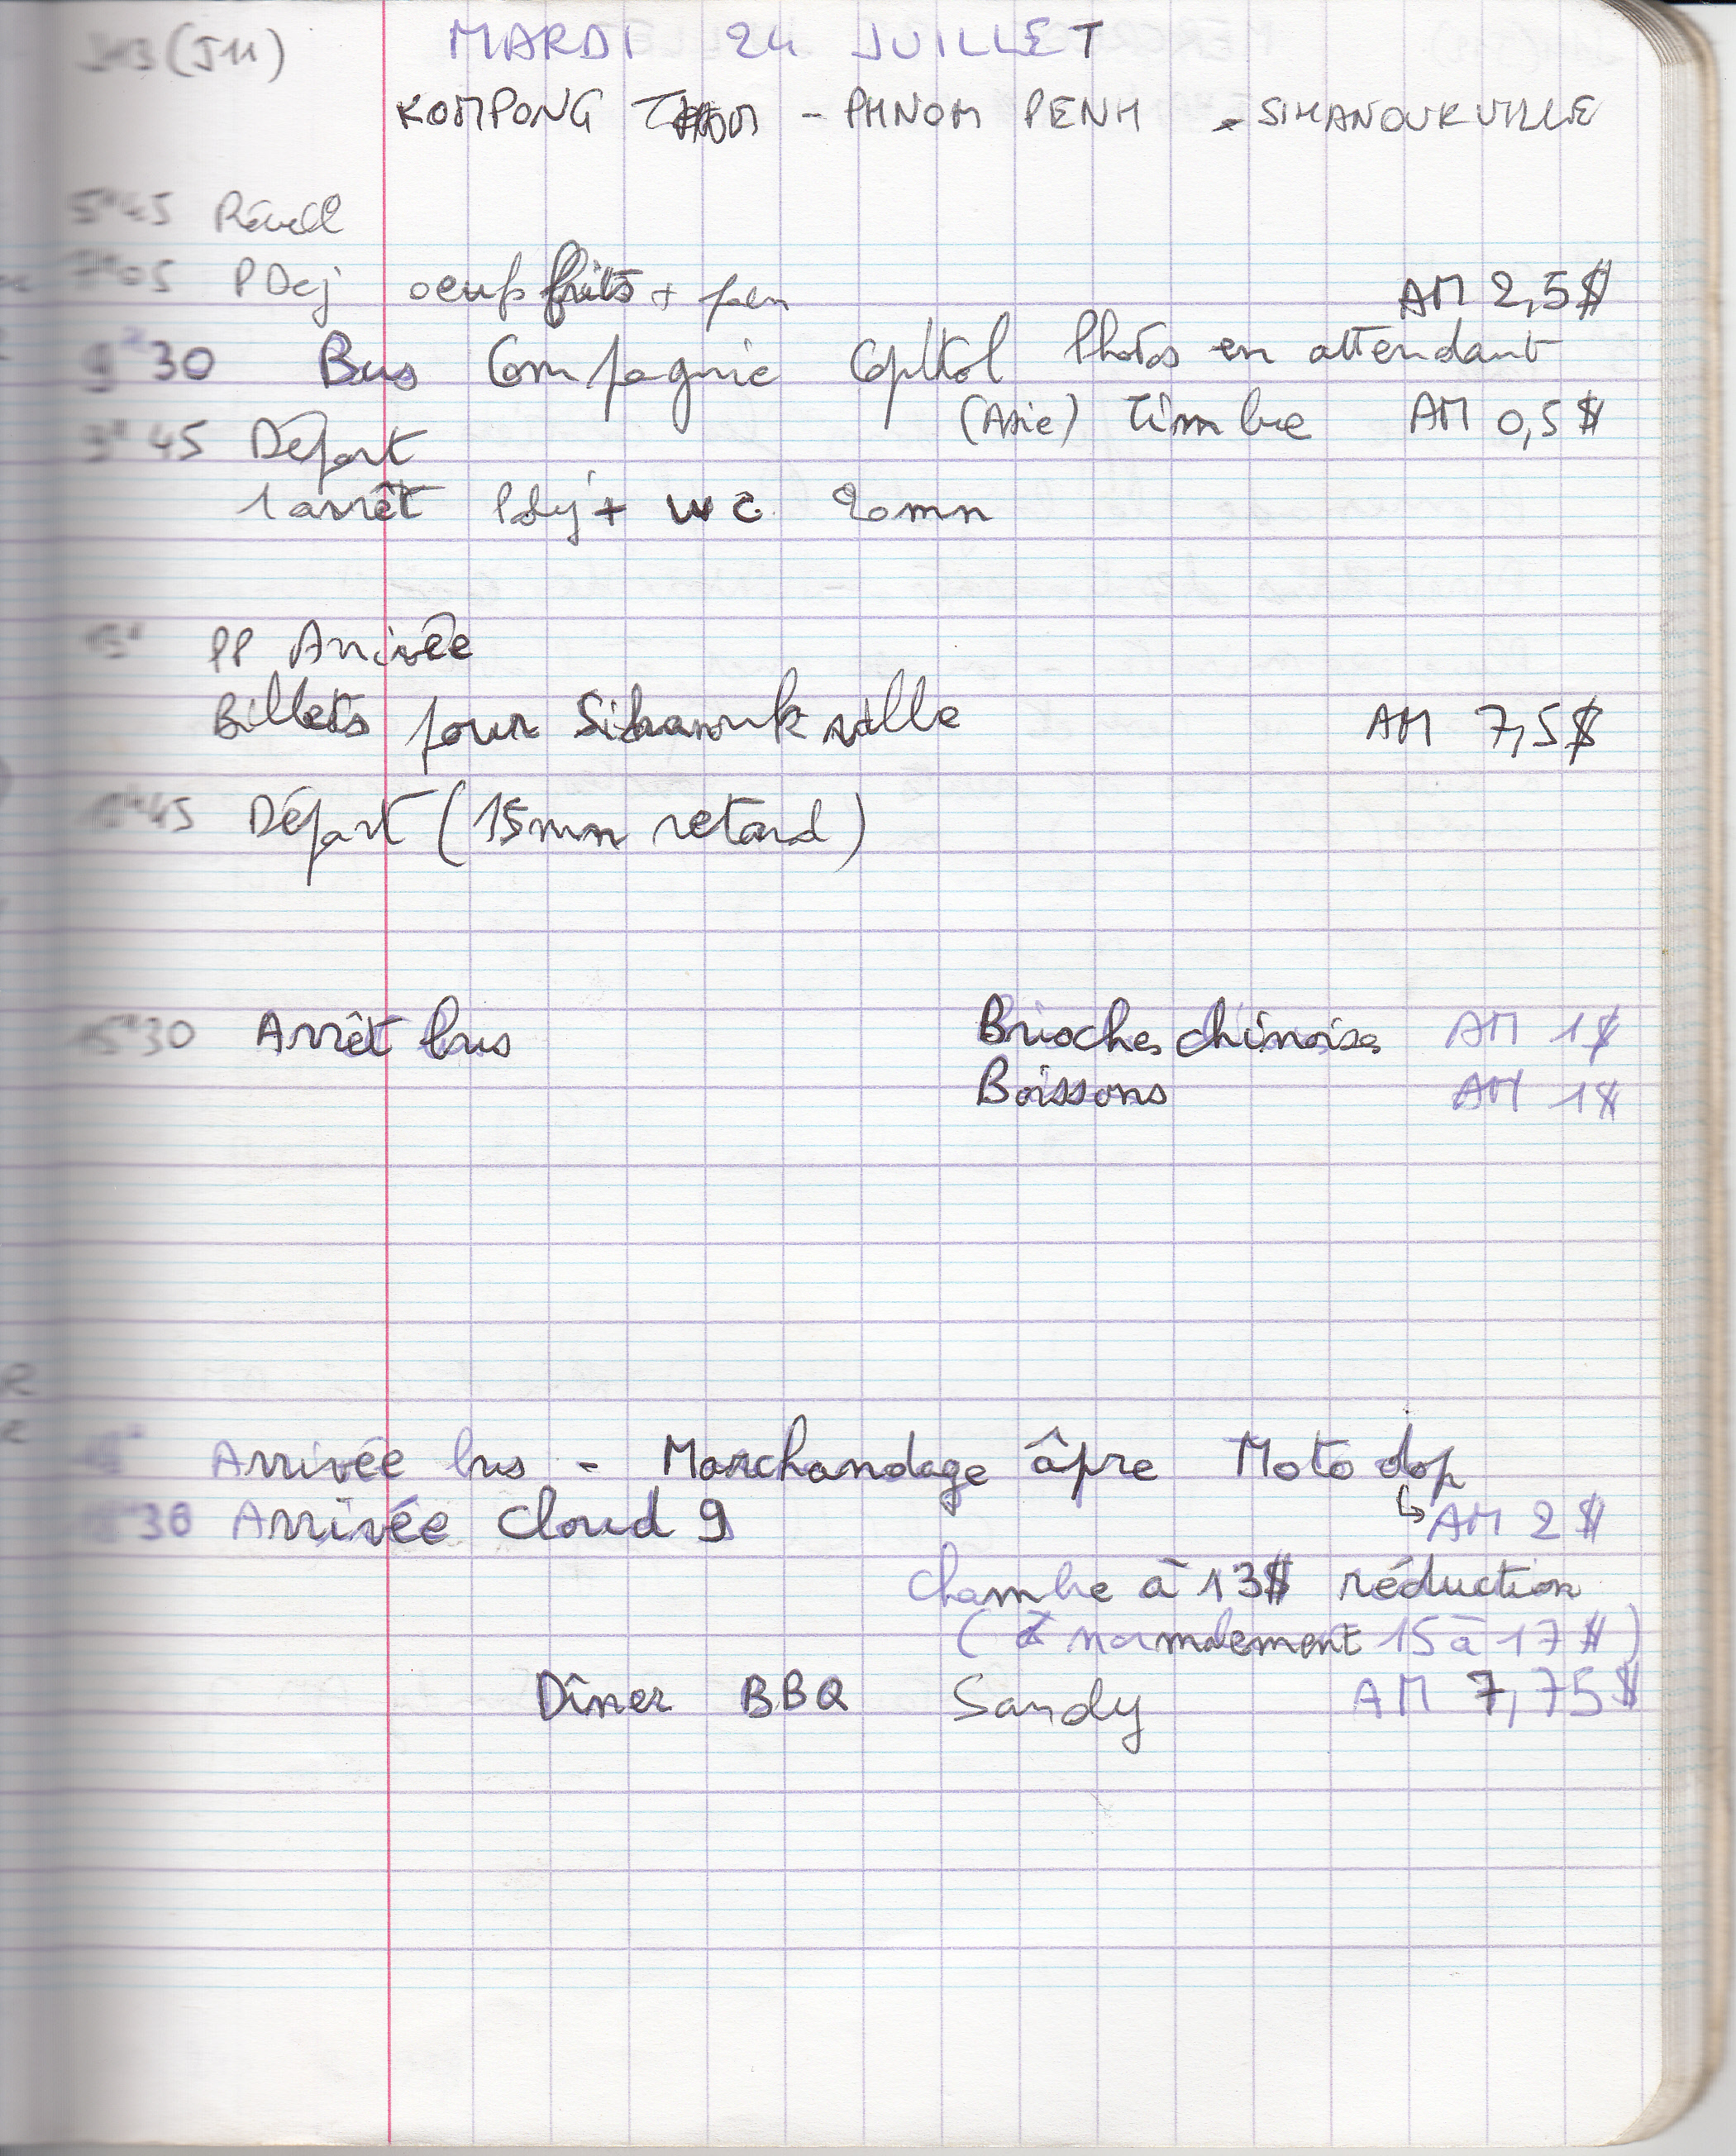 J13 (J11) MARDI 24 JUILLET
KOMPONG THOM - PHNOM PENH - SIHANOUKVILLE
5h45 Réveil
7h05 PDej oeufs frits + pain AM 2,5$
9h30 Bus Compagnie Capitol Photos en attendant
(Asie) Timbre AM 0,5$
9h45 Départ
1 arrêt Pdej + WC 20mn
13h PP Arrivée
Billets pour Sihanoukville AM 7,5$
45 Départ (15mn retard)
15h30 Arrêt bus Brioches chinoises AM 1$
Boissons AM 1$
Arrivée bus - Marchandage âpre Moto dop
30 Arrivée Cloud 9 ↳ AM 2$
Chambre à 13$ réduction
( normalement 15 à 17$)
Dîner BBQ Sandy AM 7,75$